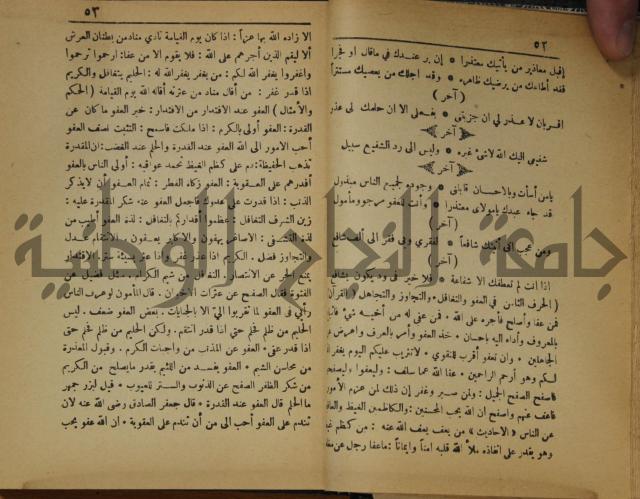 ٥٢
إقبل معاذير من يأتيك معتذرا * إن بر عندك في ماقال او فجرا
فقد أطاعك من يرضيك ظاهره * وقد اجلك من يعصيك مستترا
( آخر )
اقر بان لا عذر لي ان جزيتني * بفعلى الا ان حلمك لى عذر
آخر
شفيعي اليك الله لاشىء غيره * وليس الى رد الشفيع سبيل
آخر
يامن أسأت وبالاحسان قابلني * وجوده لجميع الناس مبذول
قد جاء عبدك يامولاى معتذرا * وأنت للعفو مرجو ومأمول
( آخر )
ومن عجب انى أتيتك شافعاً * لفقري وبي فقر الى الف شافع
( آخر )
اذا انت لم تعطفك الا شفاعة * فلا خير فى ود يكون بشافع
( الحرف الثامن في العفو والتغافل * والتجاوز والتجاهل ) ( القرآن
فمن عفا وأصلح فأجره على الله * فمن عفى له من أخيه شيء فاتباع
بالمعروف وأداء اليه باحسان * خذ العفو وأمر بالعرف واعرض عن
الجاهلين * وان تعفوا أقرب للتقوى * لاتثريب عليكم اليوم يغفر الله
لكم وهو أرحم الراحمين * عفا الله عما سلف : وليعفوا وليصفحوا
فاصفح الصفح الجميل : ولمن صبر وغفر إن ذلك لمن عزم الأمور
فاعف عنهم واصفح ان الله يحب المحسنين : والكاظمين الغيظ والعافين
عن الناس « الاحاديث » من يعف يعف الله عنه : من كظم غيظا
وهو يقدر على انفاذه ملأ الله قلبه امناً وايماناً : ماعفا رجل عن مظلمة
٥٣
الا زاده الله بها عزاً : اذا كان يوم القيامة نادي مناد من بطنان العرش
ألا ليقم الذين أجرهم على الله : فلا يقوم الا من عفا : ارحموا ترحموا
واغفروا يغفر الله لكم : من يغفر يغفر الله له : الحليم يتغافل والكريم
اذا قدر غفر : من أقال مناد من عثرته أقاله الله يوم القيامة ( الحكم
والأمثال ) العفو عند الاقتدار من الاقتدار : خير العفو ما كان عن
القدرة : العفو أولى بالكرم : اذا ملكت فاسمح : التثبت نصف العفو
أحب الامور الى الله العفو عند القدرة والحلم عند الغضب : ان المقدرة
تذهب الحفيظة : دم على كظم الغيظ تحمد عواقبه : أولى الناس بالعفو
أقدرهم على العقوبة : العفو زكاة الظفر : تمام العفو أن لا يذكر
الذنب : اذا قدرت على عدوك فاجعل العفو عنه شكر المقدرة عليه :
زين الشرف التغافل : عظموا أقداركم بالتغافل : لذة العفو أطيب من
لذة التشفى : الاصاغر يهفون والاكابر يعفون . الانتقام عدل
والتجاوز فضل . الكريم اذا قدر عفا واذا عثر بسيئة ستر . الاقتدار
يمنع الحر عن الانتصار . التغافل من شيم الكرام . . مثل الفضيل عن
الفتوة فقال الصفح عن عثرات الأخوان . قال المأمون لو عرف الناس
رأيي فى العفو لما تقربوا اليّ الا بالجنايات . بعض العفو ضعف . ليس
الحليم من ظلم فحلم حتي اذا قدر انتقم . ولكن الحليم من ظلم فحلم حتى
اذا قدر عفى * العفو عن المذنب من واجبات الكرم . وقبول المعذرة
من محاسن الشيم * العفو يفسد من اللئيم بقدر مايصلح من الكريم
من شكر الظفر الصفح عن الذنوب والستر للعيوب * قيل لبزر جمهر
ما الحلم قال العفو عند القدرة * قال جعفر الصادق رضى الله عنه لان
تندم على العفو أحب الى من أن تندم على العقوبة * ان الله عفو يحب
جامعة النجاح الوطنية